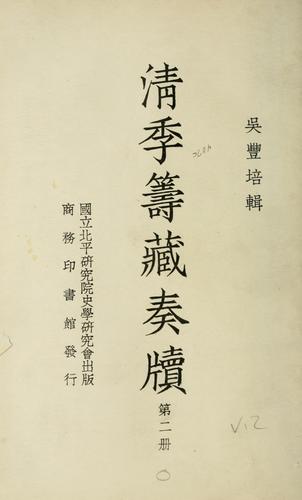 吳豐培輯
清季籌藏奏牘
第二册
國立北平研究院史學研究會出版
商務印書館發行
V.2